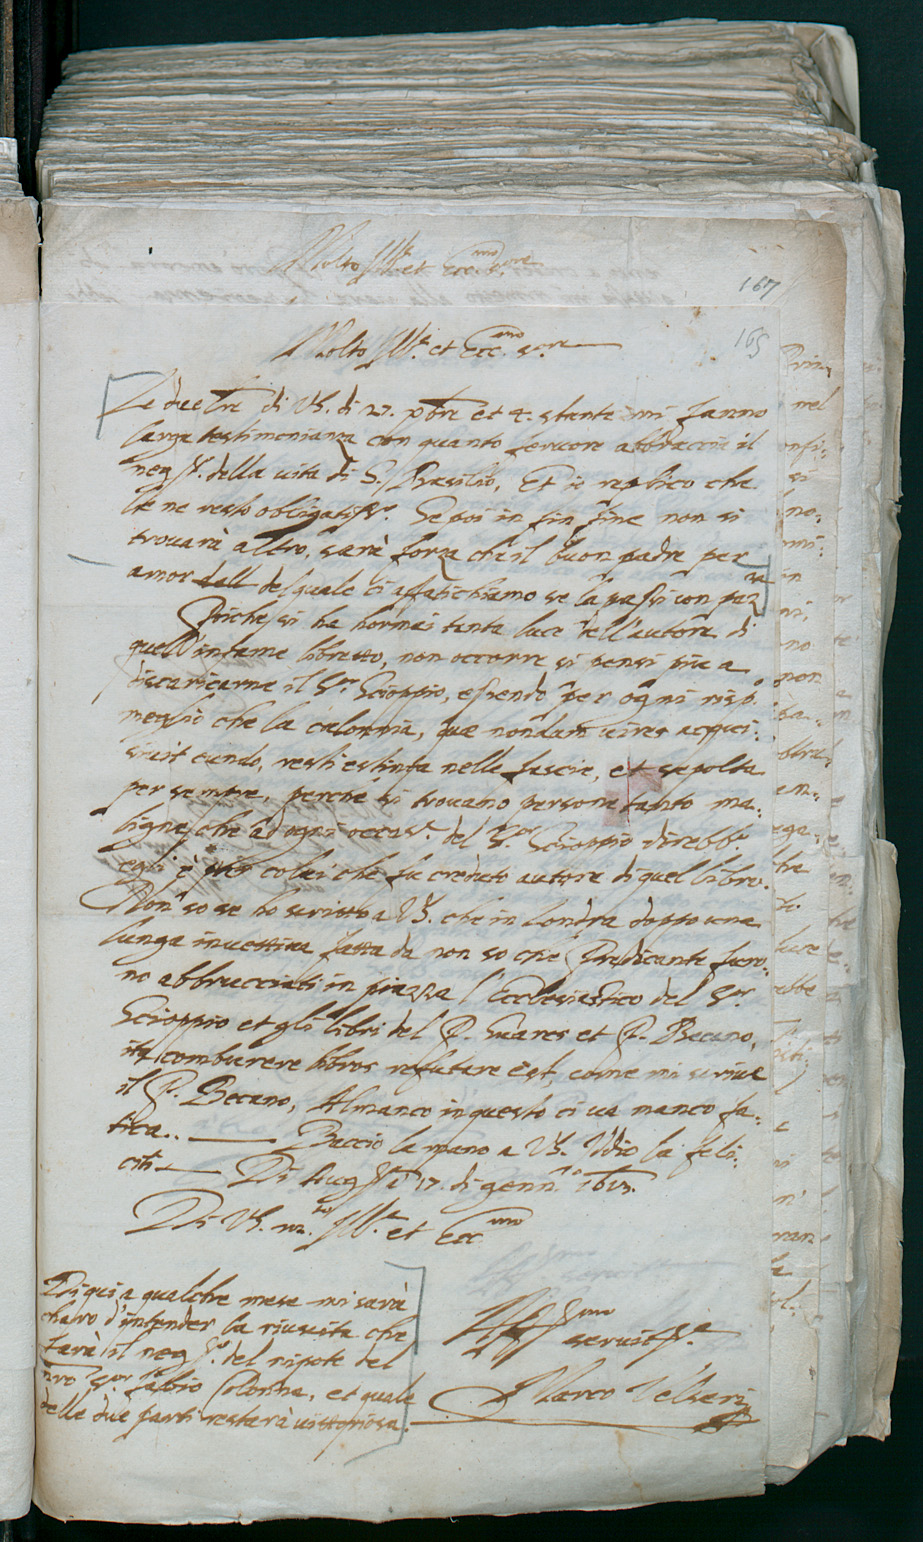 Molto Ill.e et Ecc.mo s.ore
167
Molto Ill.e et Ecc.mo s.ore
165
Le due Lre di VS. di 27. xbre et 4. stante mi fanno
larga testimonianza con quanto fervore abbraccia il
neg.o della vita di S. Basilio, Et io replico che
le ne resto obligatiss.o Se poi in fin fine non si
trovarà altro, sarà forza che il buon padre per
amor dell del quale ci affatichiamo se la passi con paz.za
Poiche si ha hormai tanta luce dell'autore di
quell'infame libretto, non occorre si pensi più a
discaricarne il S.r Scioppio, essendo per ogni risp.o
meglio che la calonnia, quae nondum vires acqui-
sivit eundo, resti estinta nelle fascie, et sepolta
per sempre, perche si trovano persone tanto ma-
ligne, che ad ogni occas.e del S.r Scioppio direbb.o
egli è colui che fu creduto autore di quel libro.
Non so se ho scritto a VS. che in Londra doppo una
lunga invettiva fatta da non so che Predicante furo-
no abbracciati in piazza l'Ecclesiastico del S.r
Scioppio et gli libri del P. Suares et P. Becano,
comburere libros refutare est, come mi scrive
il P. Becano, Almanco in questo ci va manco fa-
tica. Baccio la mano a VS. Iddio la feli-
citi Di Aug.ta 17. di genn.o 1613.
Di VS. m.to Ill.e et Ecc.mo
Di qui a qualche mese mi sarà
charo d'intender la riuscita che
farà il neg.o del nipote del
nro S.or Fabio Colonna, et quale
delle due parti resterà vittoriosa.
Aff.mo
servit.re
Marco Velseri